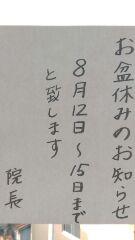 お盆休みのお知らせ
8月12日~15日まで
と致します
院長